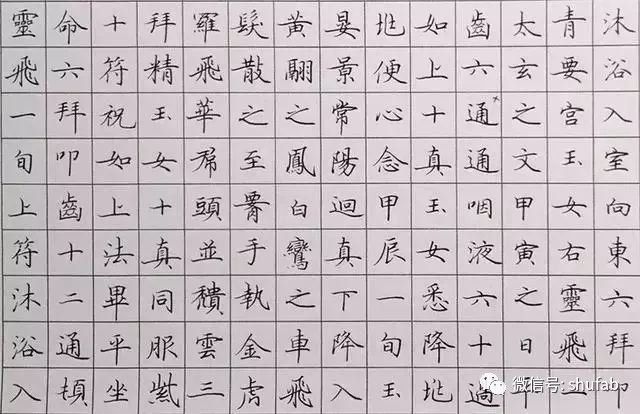 沐浴入室向東六拜叩
青要宫玉女右靈飛一
太玄之文甲寅之日甲
齒六通通咽液六十過
如上十真玉女悉降兆
兆便心念甲辰一旬玉
晏景常陽迴真下降入
黃翮之鳳白鸞之車飛
髮散之至腰手執金虎
羅飛華帬頭並穨雲三
拜精玉女十真同服紫
十符祝如上法畢平坐
命六拜叩齒十二通頓
靈飛一旬上符沐浴入
微信号: shufabo